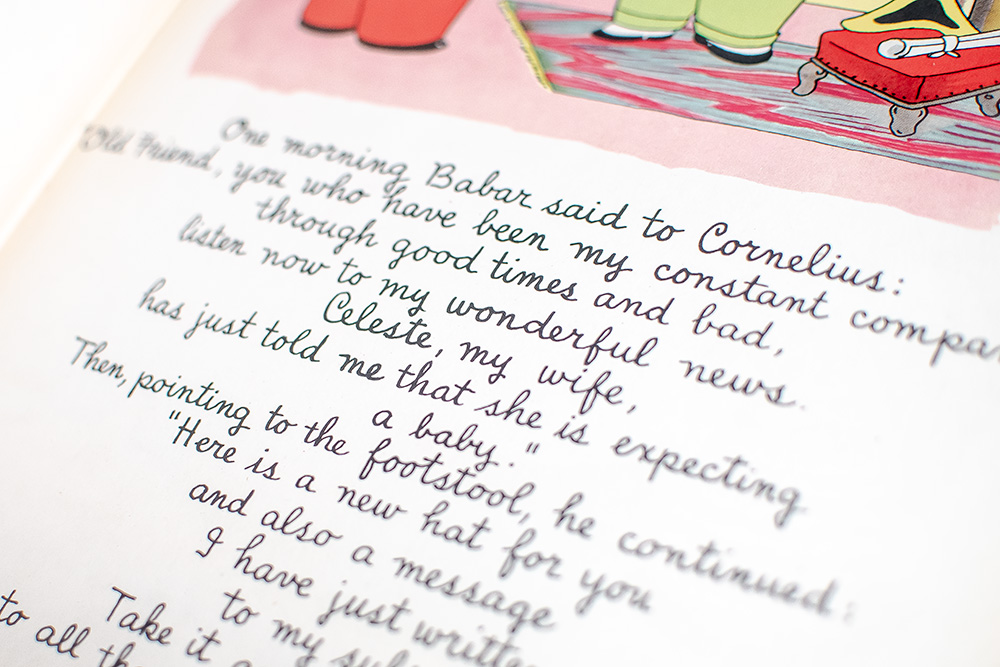 One morning Babar said to Cornelius:
Old Friend, you who have been my constant compa
through good times and bad,
listen now to my wonderful news.
Celeste, my wife,
has just told me that she is expecting
a baby."
Then, pointing to the footstool, he continued:
"Here is a new hat for you
and also a message
I have just written
to my
Take it
to all